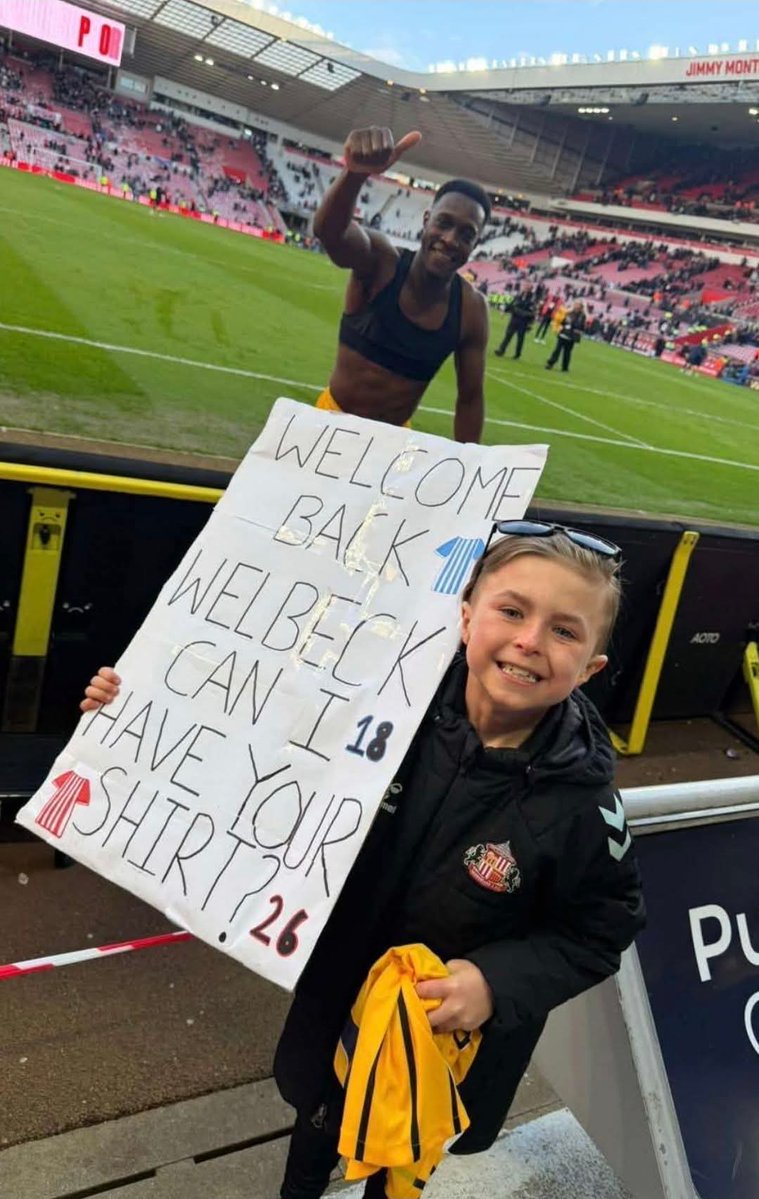 P O
JIMMY MONT
WELCOME
BACK
WELBECK
CAN I
18
HAVE YOUR
SHIRT?
26
hummel
AOTO
Pu